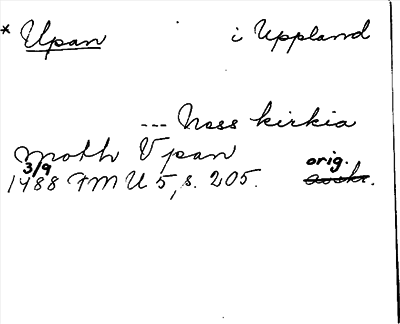 * Upan i Uppland
--- Noss kirkia
moth Vpan
3/9 orig.
1488 FMU 5, s. 205. avskr.